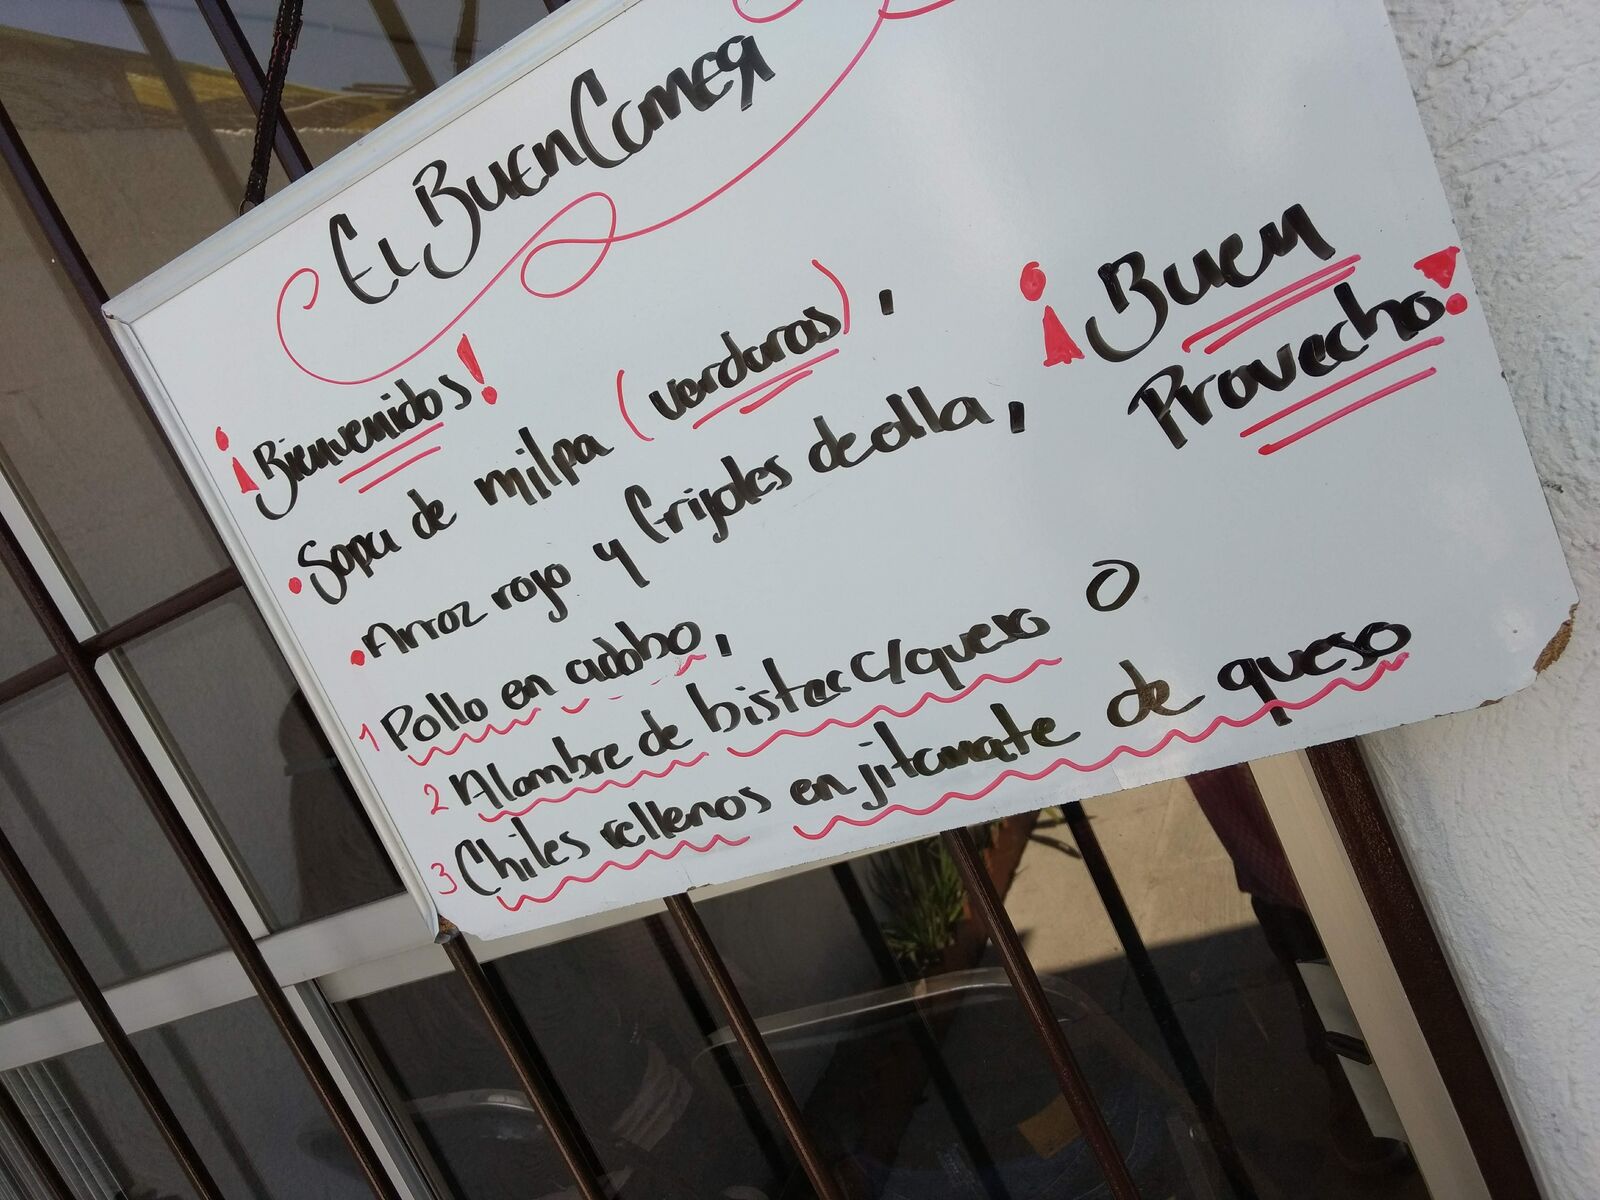 El Buen Comer
¡Bienvenidos!
• Sopa de milpa (verduras),
• Arroz rojo y frijoles de olla,
1 Pollo en adobo,
2 Alambre de bistec c/queso O
3 Chiles rellenos en jitomate de queso
¡Buen
Provecho!